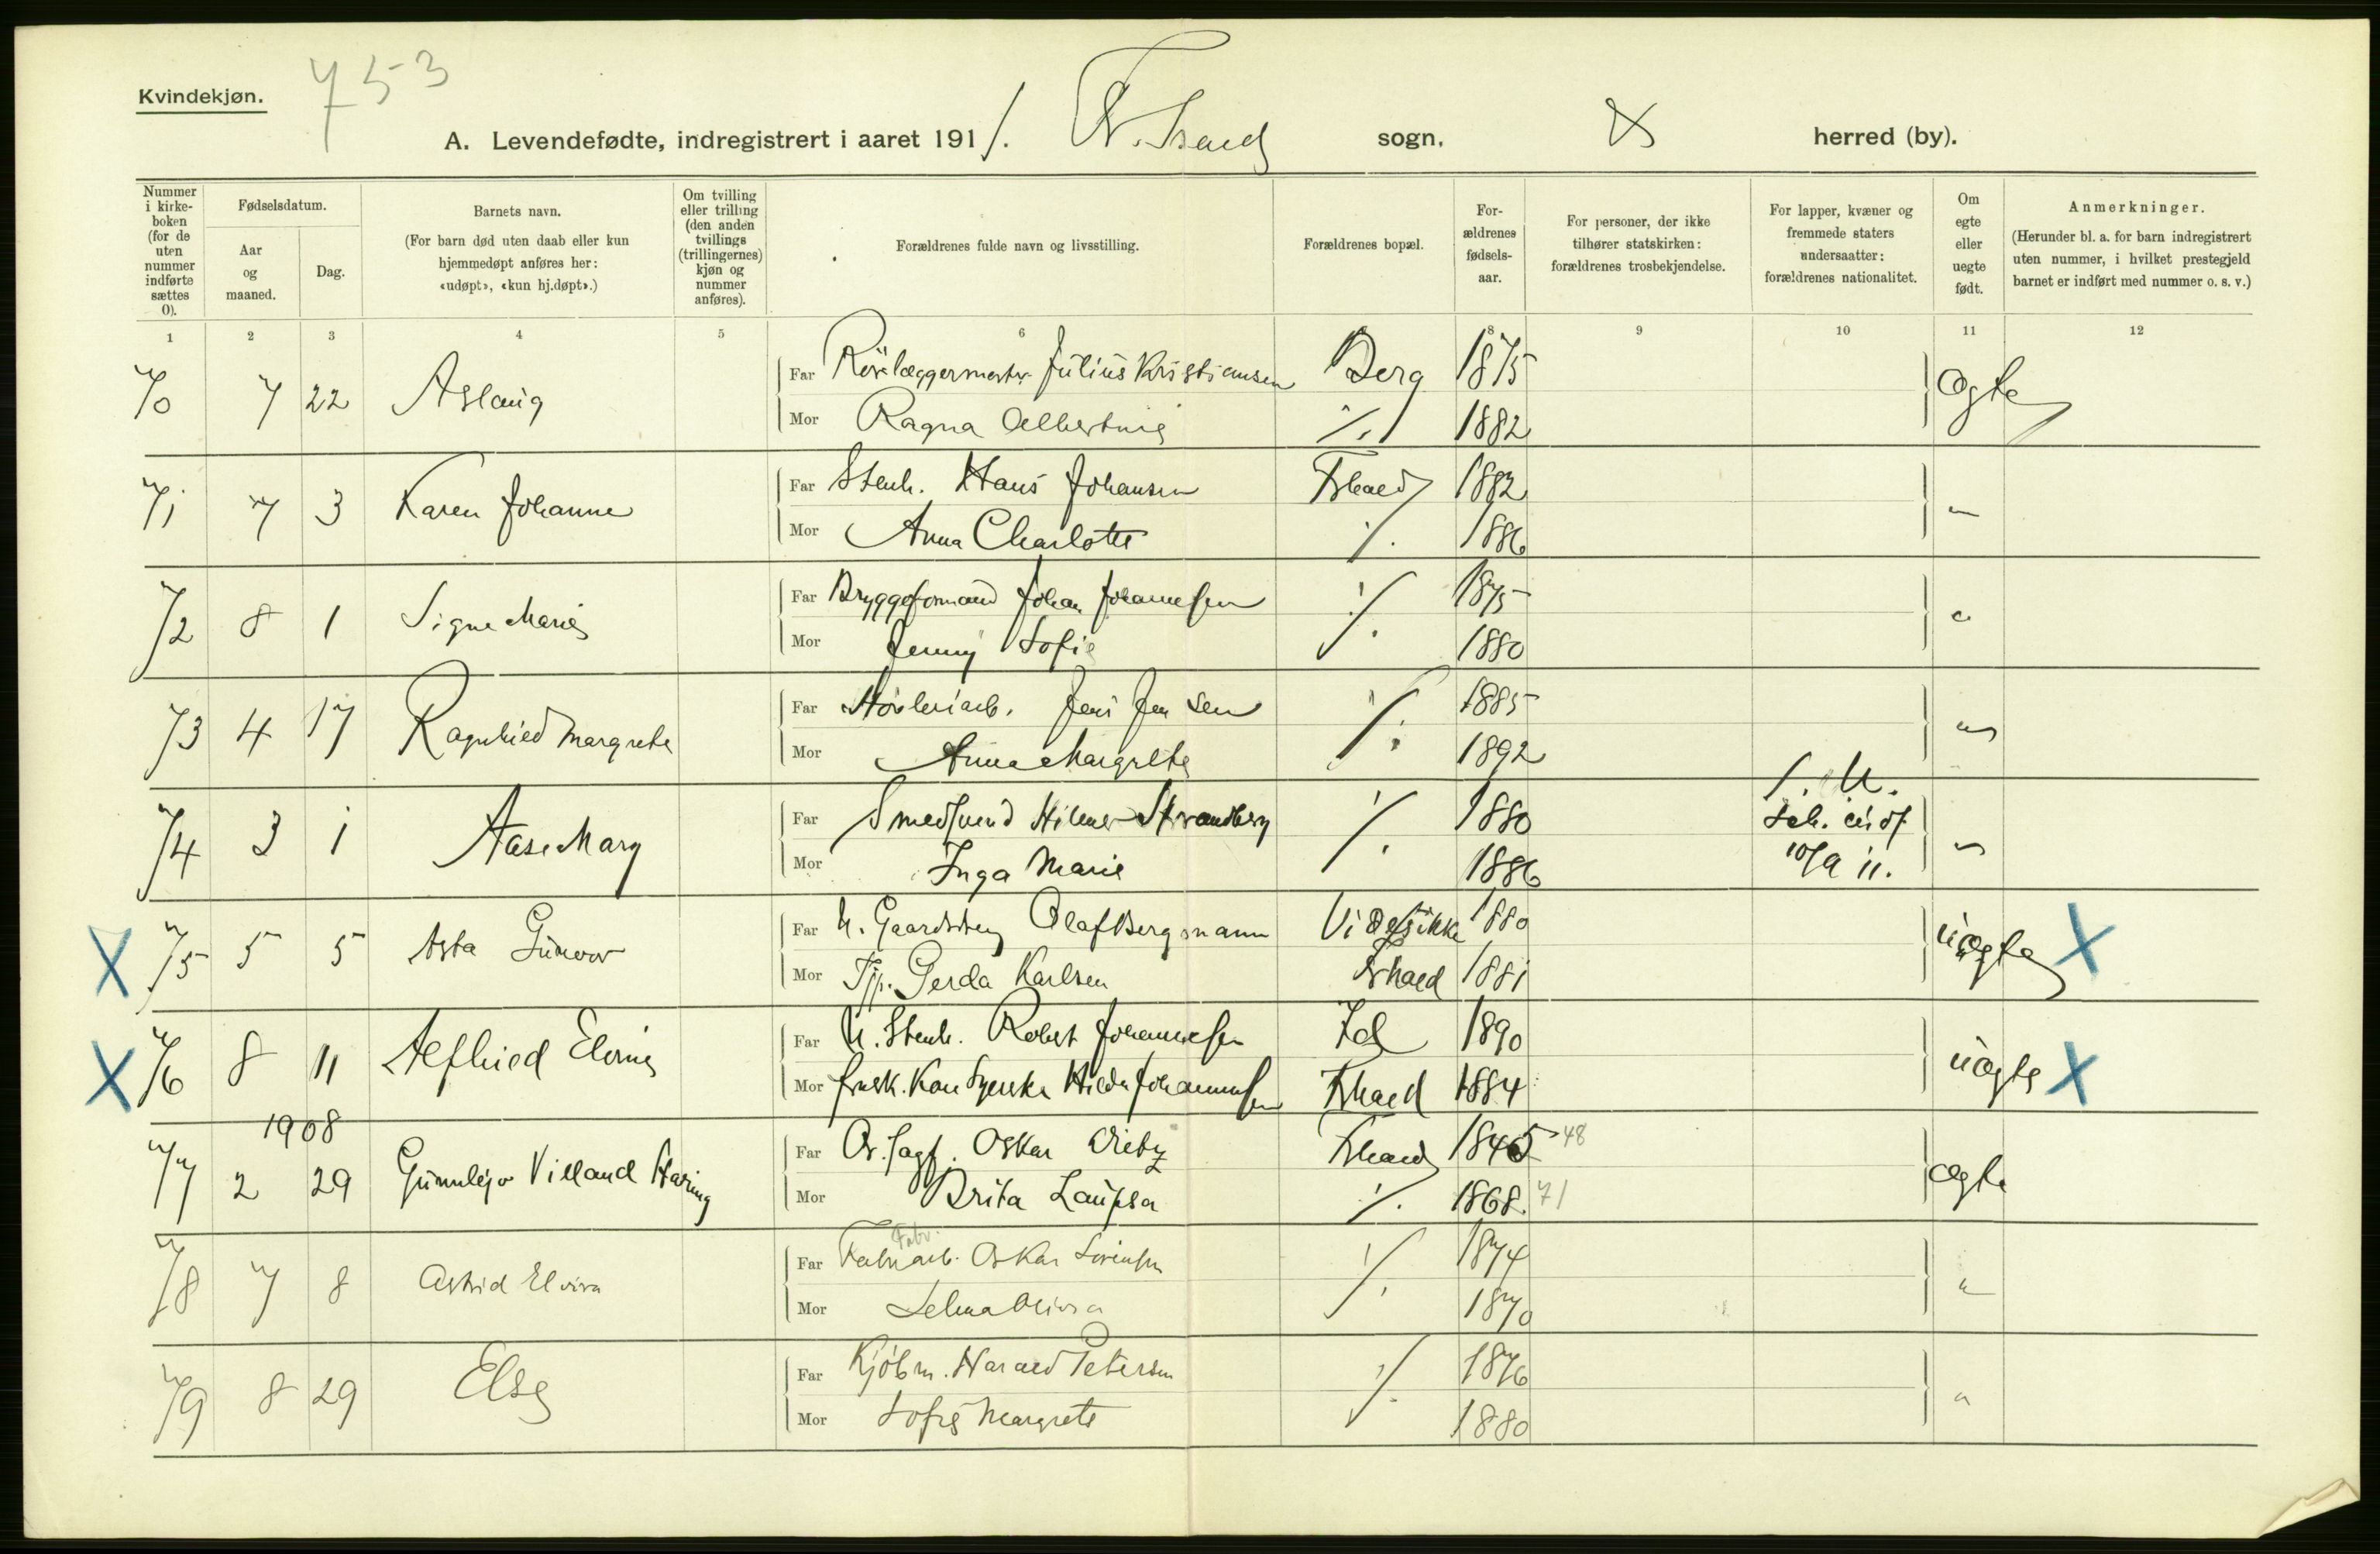 753
Kvindekjøn.
A. Levendefødte, indregistrert i aaret 1911. sogn. herred (by).
Nummer i kirke-boken (for de uten nummer indførte sættes 0).
Fødselsdatum.
Aar og maaned.
Dag.
Barnets navn.
(For barn død uten daab eller kun hjemmedøpt anføres her: «udøpt», «kun hj.døpt».)
Om tvilling eller trilling (den anden tvillings (trillingernes) kjøn og nummer anføres).
Forældrenes fulde navn og livsstilling.
Forældrenes bopæl.
For-ældrenes fødsels-aar.
For personer, der ikke tilhører statskirken: forældrenes trosbekjendelse.
For lapper, kvæner og fremmede staters undersaatter: forældrenes nationalitet.
Om egte eller uegte født.
Anmerkninger.
(Herunder bl. a. for barn indregistrert uten nummer, i hvilket prestegjeld barnet er indført med nummer o. s. v.)
1 2 3 4 5 6 8 9 10 11 12
70 7 22 Aslaug Far Rörlæggermester Julius Kristiansen Berg 1875 Ægte
Mor Ragna Albertine 1882
71 7 3 Karen Johanne Far Stenh. Hans Johansen Fshald 1882 "
Mor Anna Charlotte ./. 1886
72 8 1 Signe Marie Far Bryggeformand Johan Johannesen ./. 1875 "
Mor Jenny Sofie 1880
73 4 17 Ragnhild Margrete Far Høvleriarb. Jens Jensen ./. 1885 "
Mor Anna Margrete 1892
74 3 1 Aase Mary Far Smedsvend Hilmer Strandberg ./. 1880 "
Mor Inga Marie 1886
10/9 11.
X 75 5 5 Asta Gunvor Far U. Gaardsbr. Olaf Bergmann 1880 uægte X
Mor Tjp. Gerda Karlsen Fshald 1881
X 76 8 11 Alfhild Elvine Far U. Stenh. Robert Johannesen Id 1890 uægte X
Mor Hilda Johannesen Fshald 1884
1908
77 2 29 Villand Far O.sagf. Oskar Fshald 1845 48 ægte
Mor Brita Laupsa ./. 1868. 71
Fabr.
78 7 8 Astrid Elvira Far Fabrikarb. Oskar Sørensen ./. 1874 "
Mor Selma Olivia 1870
79 8 29 Else Far Kjøbm. Harald Petersen ./. 1876 "
Mor Sofie Margrete 1880